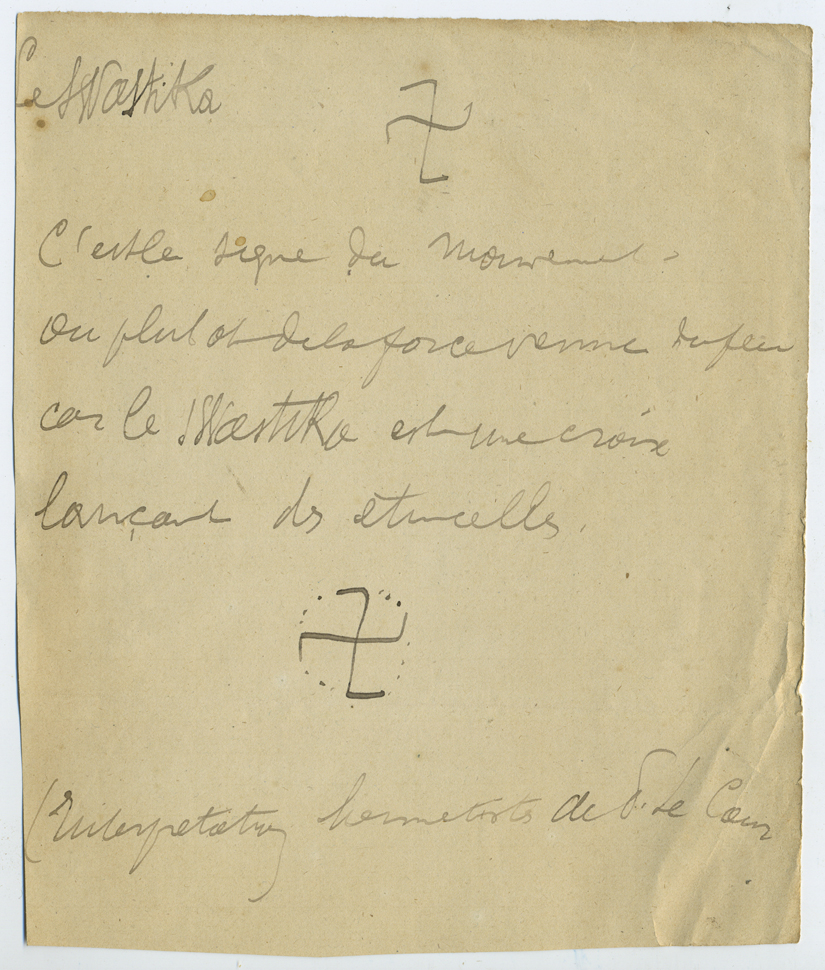 Le SWastika
C'est le signe du mouvement
ou plutot de la force venue du feu
car le SWastika est une croix
lançant des étincelles.
(Interpretation hermetiste de P. Le Cour